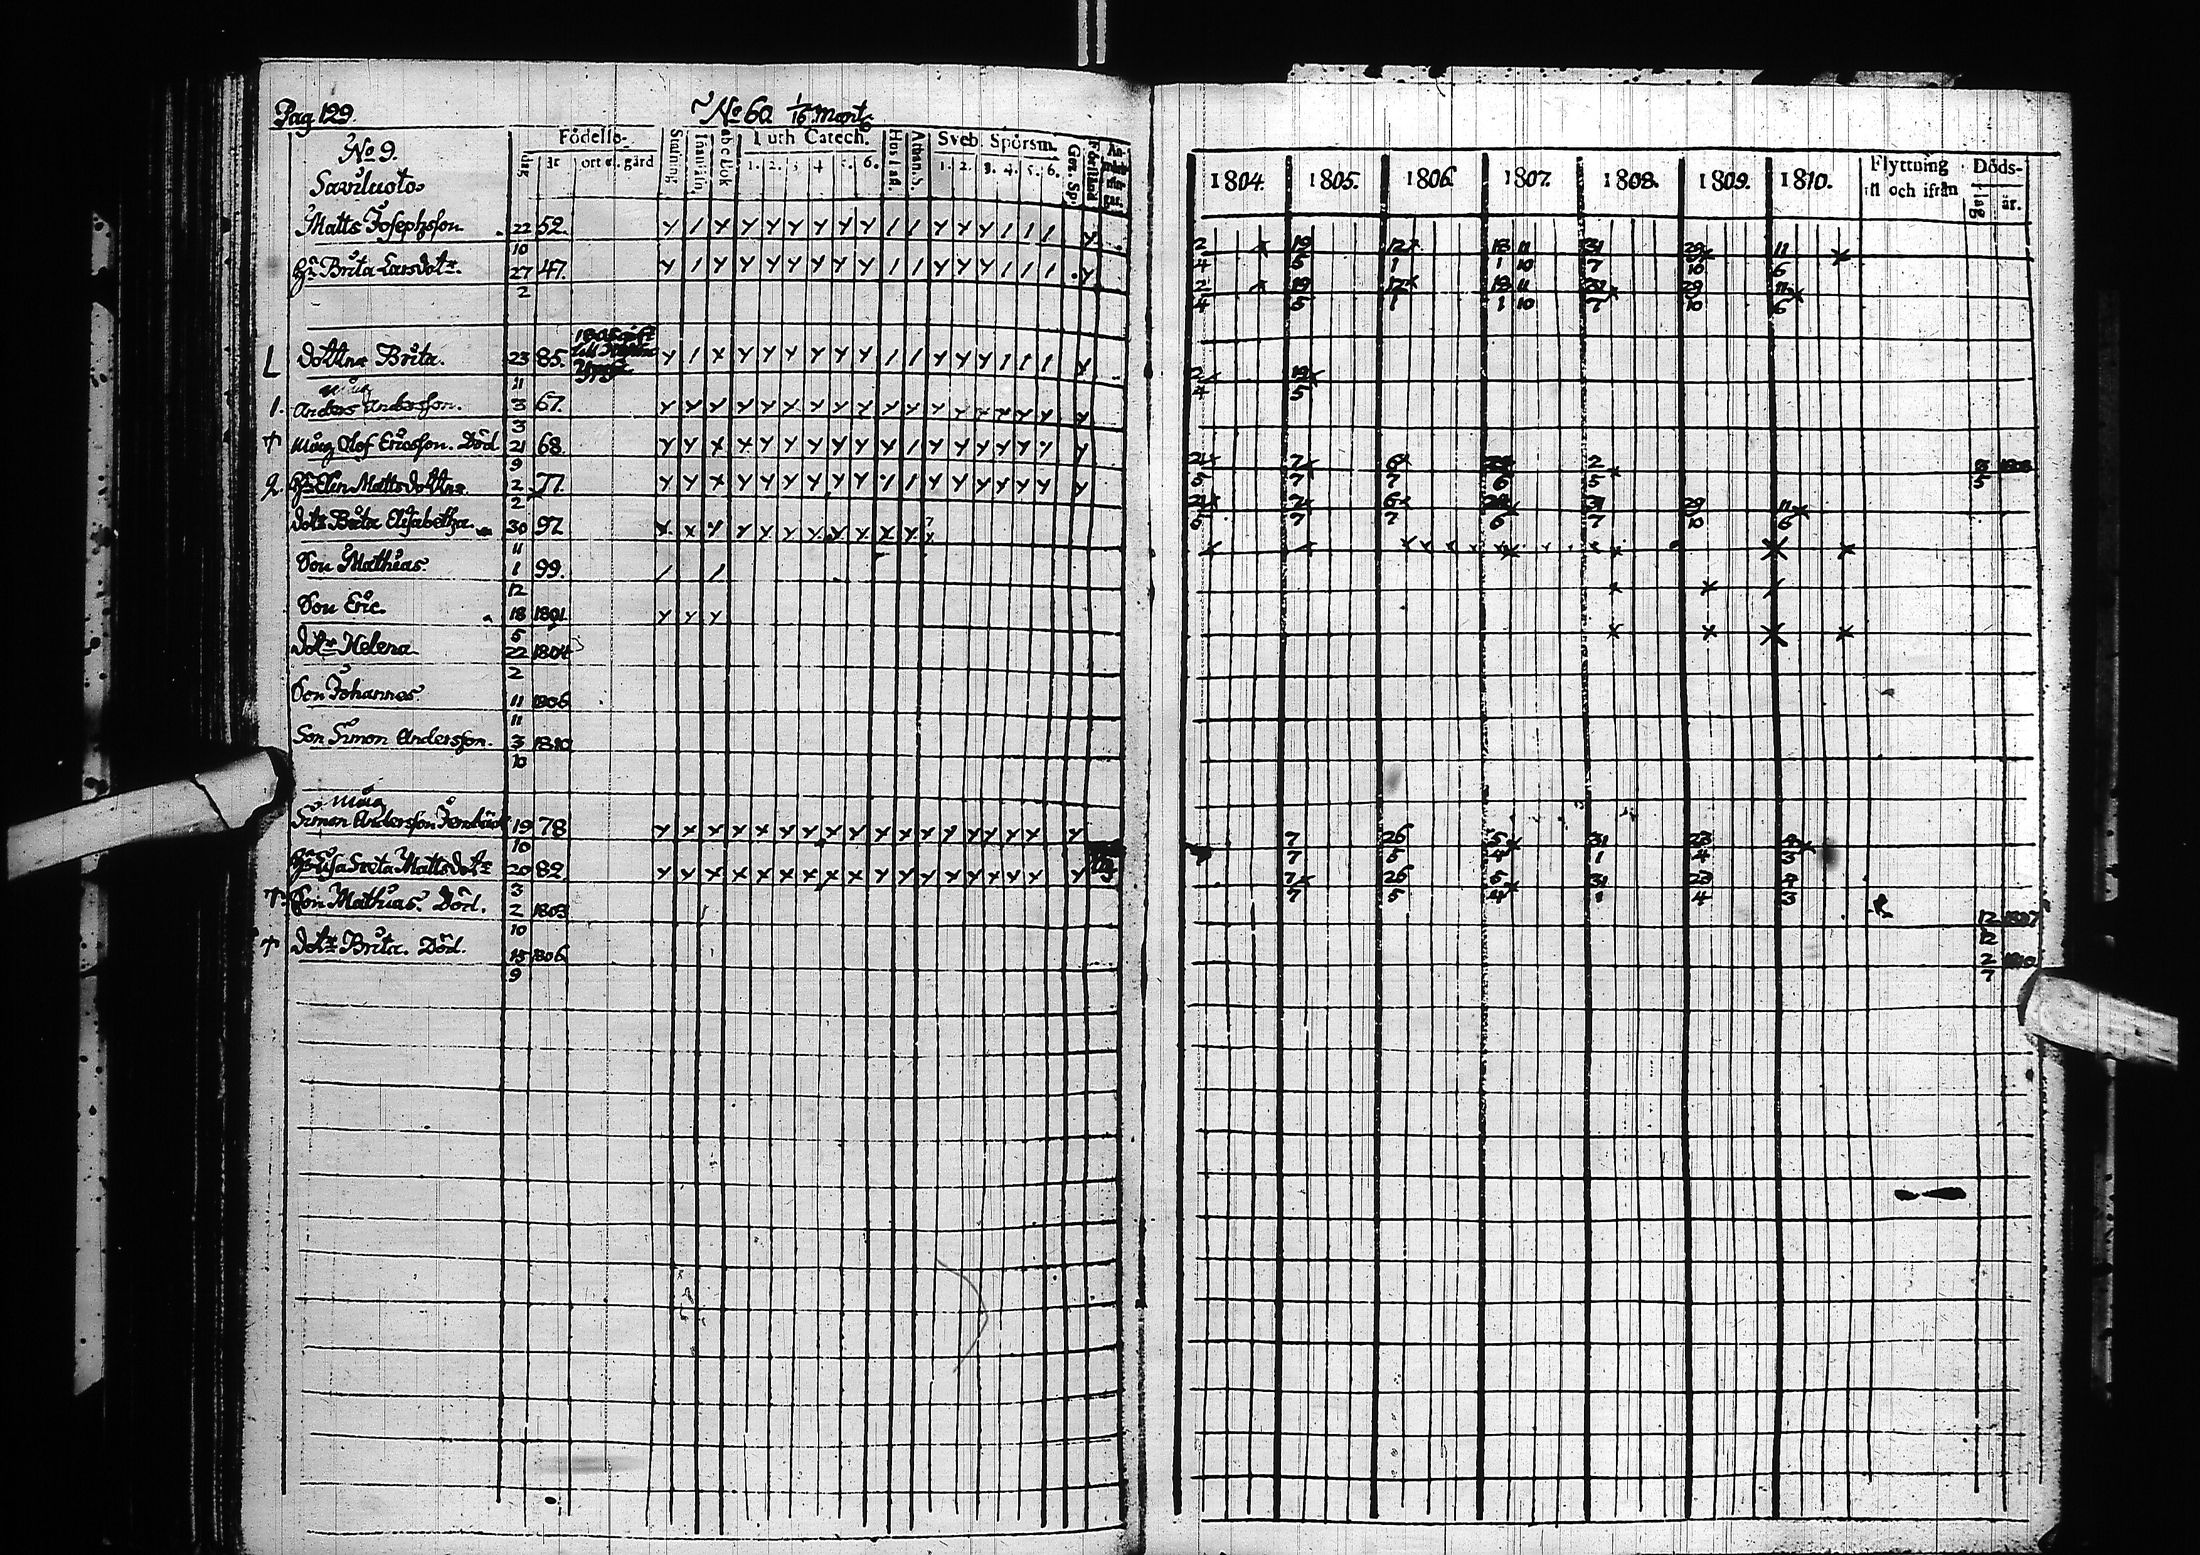 Pag 129.
No 60 1/16 Mant.
No 9.
Saviluoto
Födelse-
dag år ort el. gård
abc bok
Luth Catech.
1. 2. 3 4 5. 6.
Athan. S.
Sveb. Spörsm.
1. 2. 3. 4. 5. 6.
1804. 1805. 1806. 1807. 1808. 1809. 1810.
Flyttning
till och ifrån
Döds-
dag år.
Matts Josephsson 22 52.
10
Hu Brita Larsdotr. 27 47.
2
Dottne Brita. 23 85.
11
måg
1. Anders Andersson. 3 67.
3
+ måg Olof Ericsson. Död 21 68
9
2. Hu Elin Mattsdottne 2 77
2
Dotr Brita Elisabetha. 30 97
11
Son Mathias. 1 99.
12
Son Eric 18 1801
5
Dotr Helena 22 1804
2
Son Johannes 11 1806
11
Son Simon Andersson. 3 1810
10
måg
Simon Andersson 19 78
10
Hu Lisa Greta Mattsdotr 20 82
3
+ Son Mathias. Död. 2 1803
10
+ Dotr Brita. Död. 15 1806
9
2 19 12 13 11 31 29 11
4 5 1 1 10 7 10 6
2 19 12 13 11 31 29 11
4 5 1 1 10 7 10 6
2 19
4 5
7 6 2
5 7 7 6 5 5
7 6 31 29 11
7 7 6 7 10 6
7 26 5 31 23 4
7 5 4 1 4 3
7 26 5 31 23 4
7 5 4 1 4 3
12 1807
12
2 1810
7